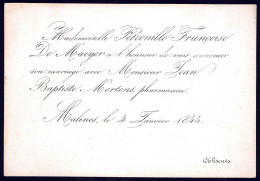 Mademoiselle Pétronille Françoise
De Maeyer a l'honneur de vous annoncer
son mariage avec Monsieur Jean
Baptiste Mertens, pharmacien.
Malines, le 4 Janvier 1844.